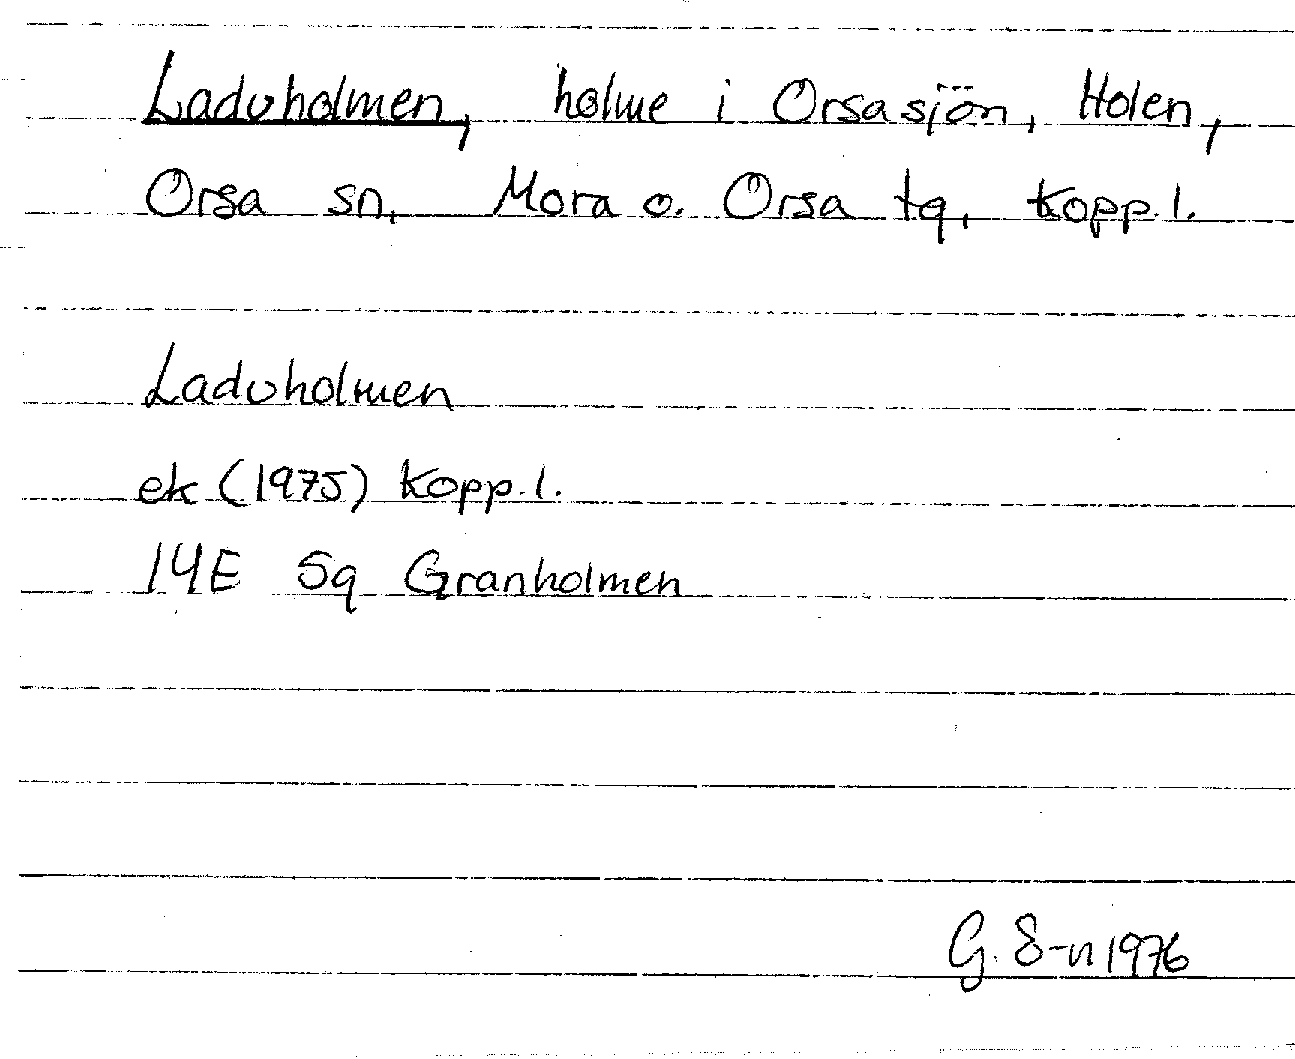 Laduholmen, holme i Orsasjön, Holen,
Orsa sn, Mora o. Orsa tg, Kopp. l.
Laduholmen
ek (1975) Kopp. l.
14E 5g Granholmen
G. S-n 1976